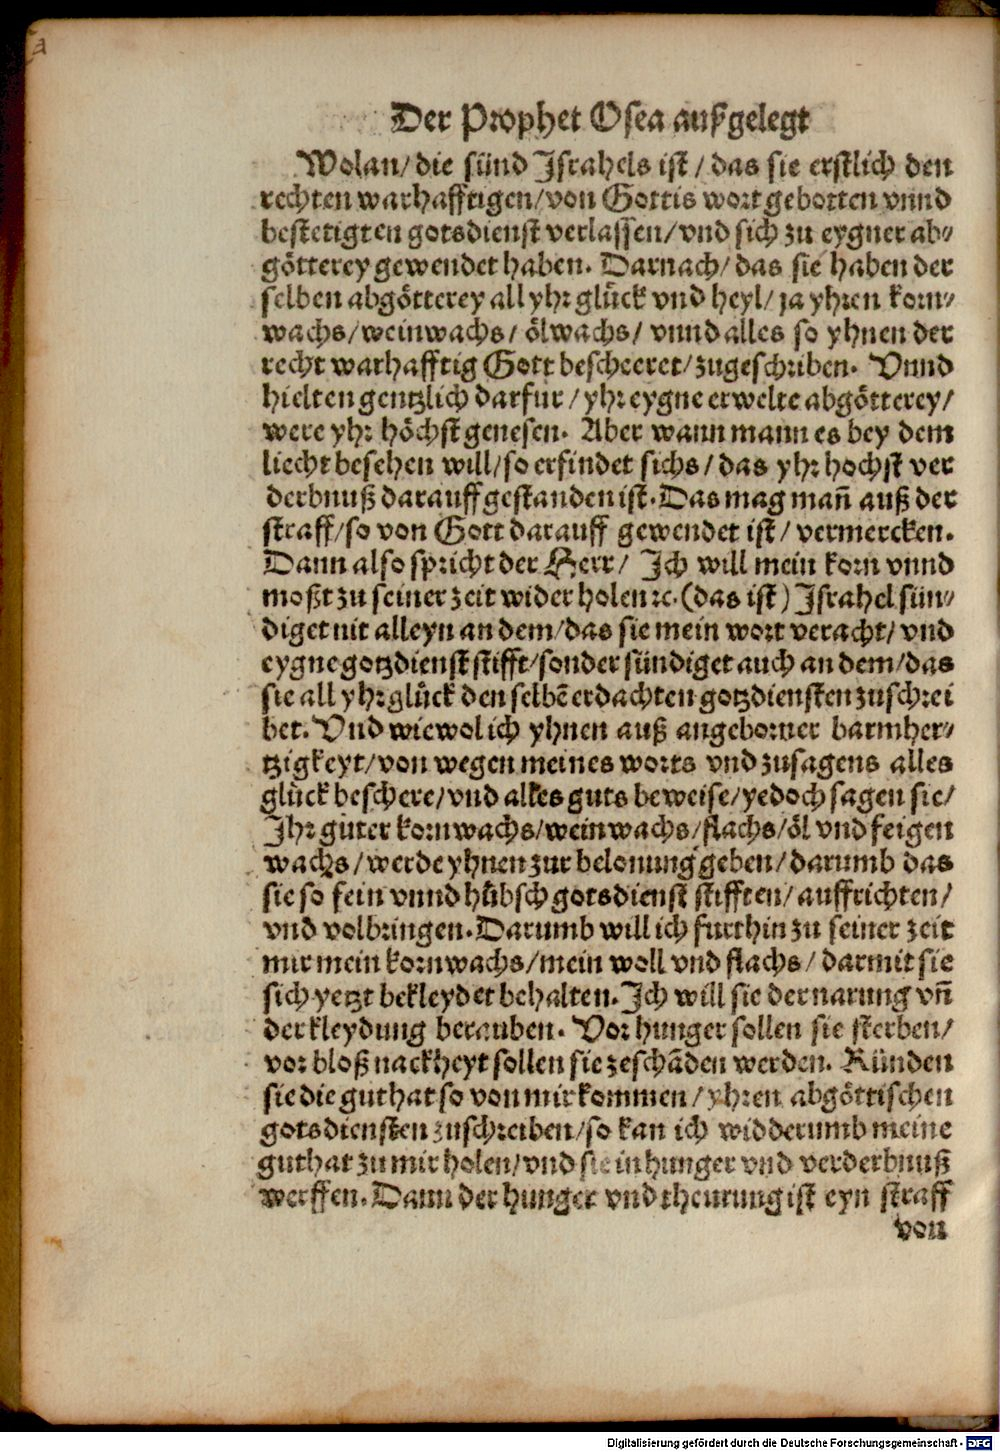 Der Prophet Osea außgelegt
Wolan/ die sünd Israhels ist / das sie erstlich den
rechten warhafftigen/ von Gottis wort gebotten vnnd
bestetigten gotsdienst verlassen/ vnd sich zu eygner ab⸗
götterey gewendet haben. Darnach/ das sie haben der
selben abgötterey all yhr glück vnd heyl/ ja yhren korn⸗
wachs/ weinwachs/ ölwachs/ vnnd alles so yhnen der
recht warhafftig Gott bescheeret/ zugeschriben. Vnnd
hielten gentzlich darfür / yhr eygne erwelte abgötterey/
were yhr höchst genesen. Aber wann mann es bey dem
liecht besehen will/ so erfindet sichs / das yhr hochst ver
derbnuß darauff gestanden ist. Das mag mañ auß der
straff/ so von Gott darauff gewendet ist / vermercken.
Dann also spricht der Herr/ Ich will mein korn vnnd
moßt zu seiner zeit widerholen ꝛc. (das ist) Israhel sün⸗
diget nit alleyn an dem/ das sie mein wort veracht/ vnd
eygne gotzdienst stifft/ sonder sündiget auch an dem/ das
sie all yhr glück den selbē erdachten gotzdiensten zuschrei
bet. Vnd wiewol ich yhnen auß angeborner barmher⸗
tzigkeyt/ von wegen meines worts vnd zusagens alles
glück beschere/ vnd alles guts beweise/ yedoch sagen sie/
Ihr guter kornwachs/ weinwachs/ flachs/ öl vnd feigen
wachs/ werde yhnen zur belonung geben/ darumb das
sie so fein vnnd hübsch gotsdienst stifften/ auffrichten/
vnd volbringen. Darumb will ich furthin zu seiner zeit
mir mein kornwachs/ mein woll vnd flachs/ darmit sie
sich yetzt bekleydet behalten. Ich will sie der narung vñ
der kleydung berauben. Vor hunger sollen sie sterben/
vor bloß nackheyt sollen sie zeschādꝛen werden. Künden
sie die guthat so von mir kommen/ yhren abgöttischen
gotsdiensten zuschreiben/ so kan ich widderumb meine
guthat zu mir holen/ vnd sie in hunger vnd verderbnuß
werffen. Dann der hunger vnd theurung ist eyn straff
von
Digitalisierung gefördert durch die Deutsche Forschungsgemeinschaft - DFG